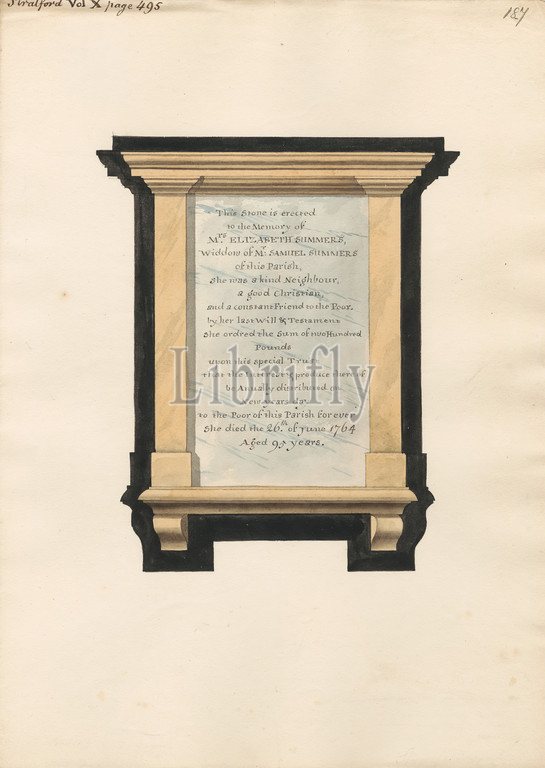 Stratford Vol X page 495
187
This Stone is erected
to the Memory of
Mrs ELIZABETH SUMMERS,
Widdow of Mr SAMUEL SUMMERS
of this Parish,
She was a kind Neighbour,
a good Christian,
and a constant Friend to the Poor.
by her last Will & Testament
She ordred the Sum of two Hundred
Pounds
upon this special Trust
that the Interest & produce thereof
be Anually distributed on
New years day
to the Poor of this Parish for ever
She died the 26th of June 1764
Aged 95 years.
Librifly